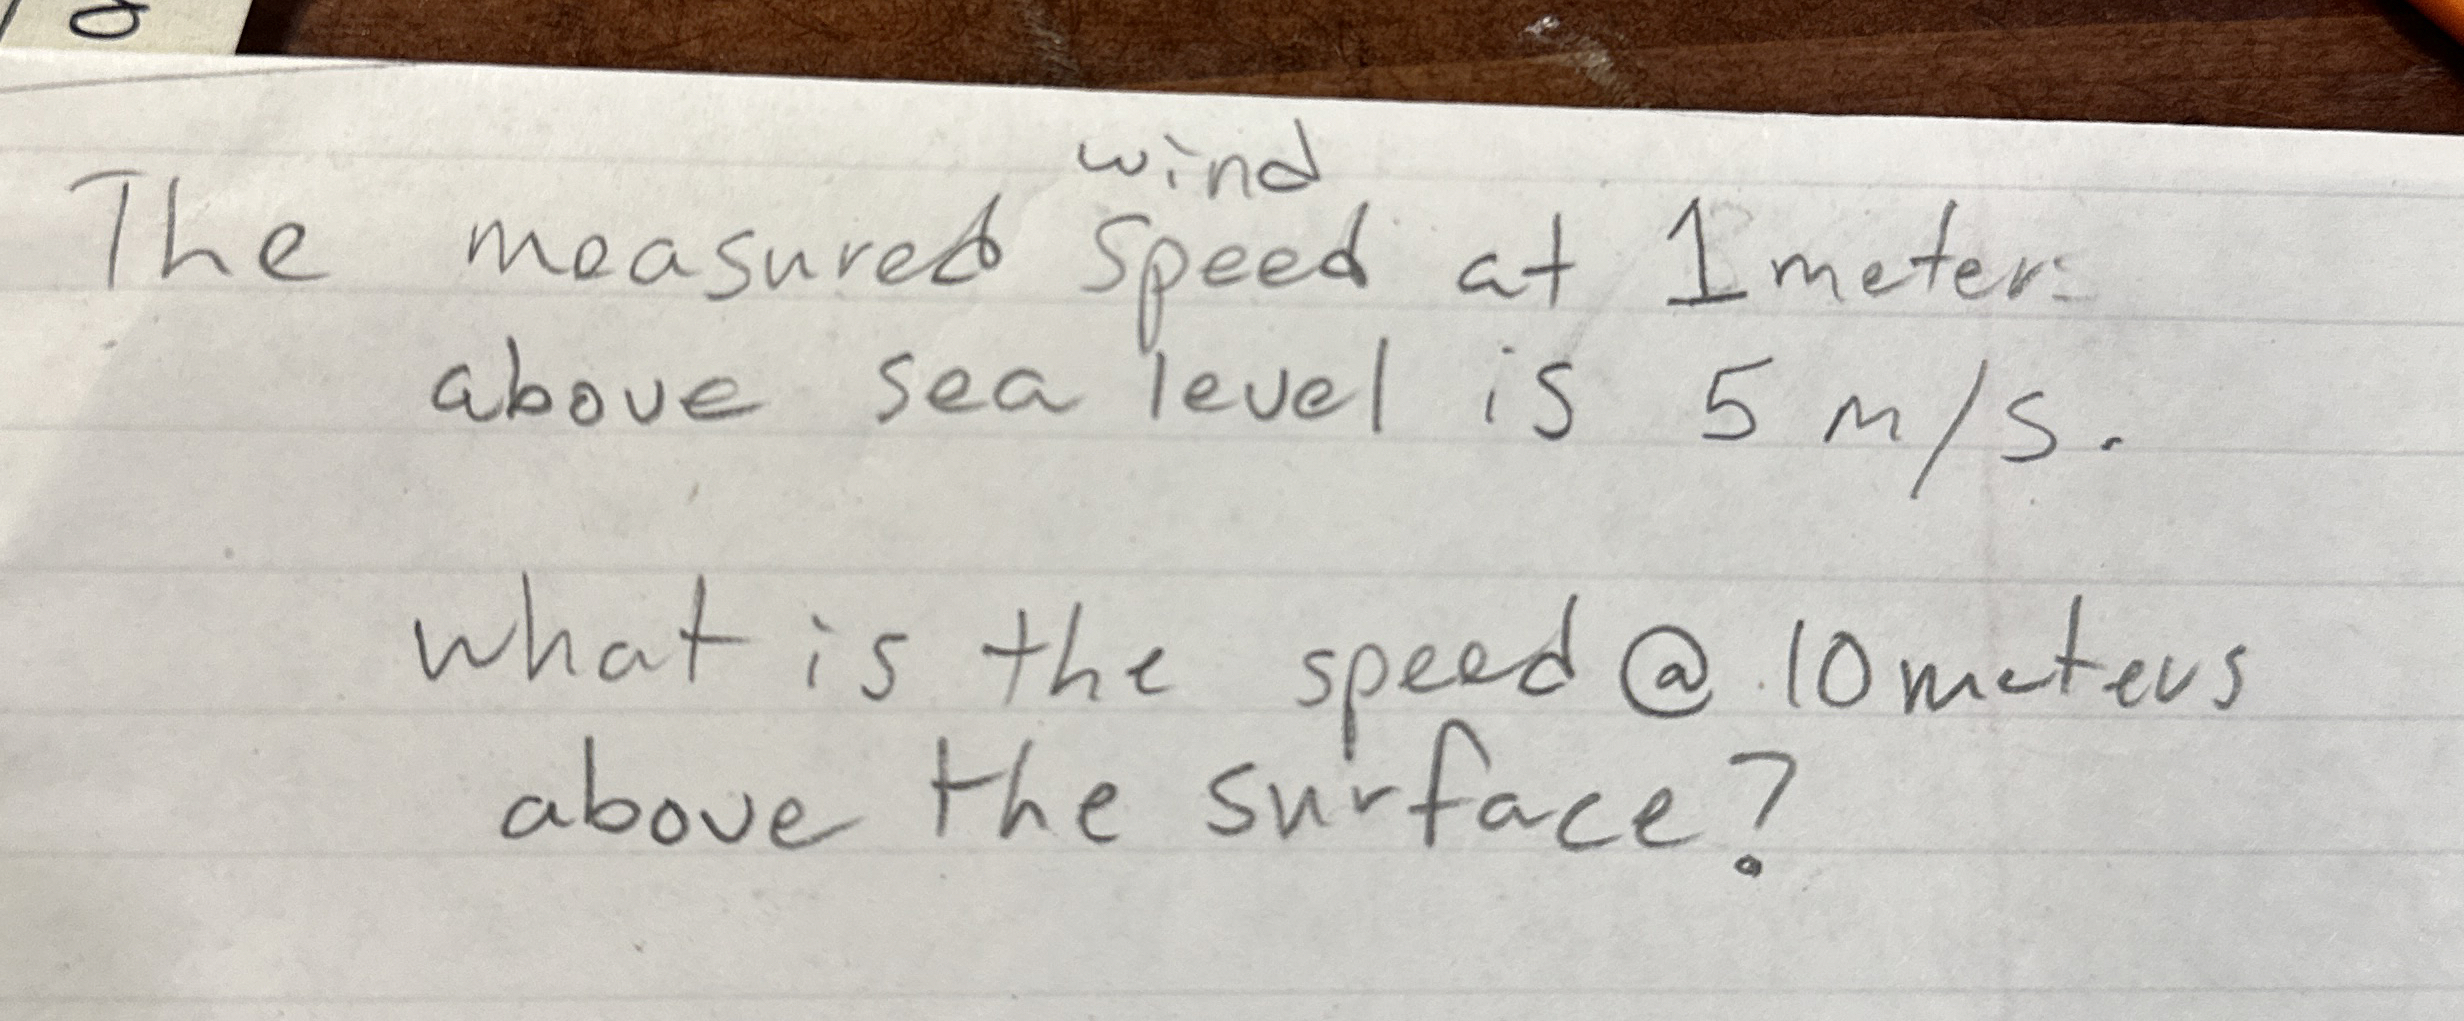 wind
The measured speed at 1 meter
above sea level is 5 m/s.
what is the speed @ 10 meters
above the surface?